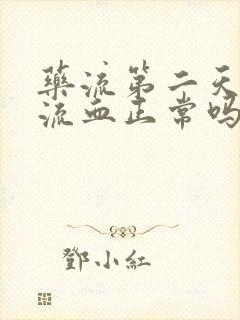 藥流第二天
流血正常嗎
鄧小紅